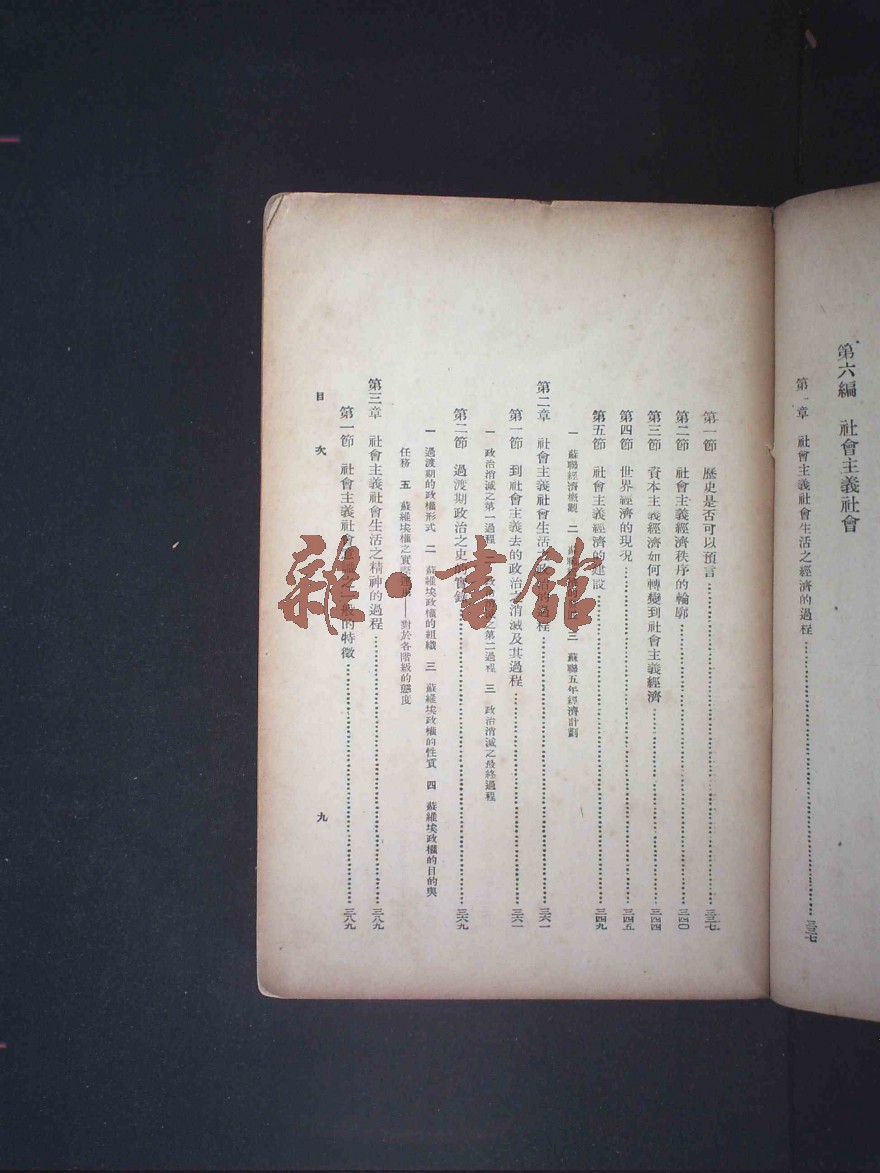 第六編 社會主義社會
第一章 社會主義社會生活之經濟的過程……三三七
第一節 歷史是否可以預言……三三七
第二節 社會主義經濟秩序的輪廓……三四〇
第三節 資本主義經濟如何轉變到社會主義經濟……三四四
第四節 世界經濟的現況……三四五
第五節 社會主義經濟的建設……三四九
一 蘇聯經濟概觀 二 蘇聯 三 蘇聯五年經濟計劃
第二章 社會主義社會生活之政治的過程……三六一
第一節 到社會主義去的政治之消滅及其過程……三六一
一 政治消滅之第一過程 二 政治消滅之第二過程 三 政治消滅之最終過程
第二節 過渡期政治之史的實錄……三六九
一 過渡期的政權形式 二 蘇維埃政權的組織 三 蘇維埃政權的性質 四 蘇維埃政權的目的與
任務 五 蘇維埃權之實際運用——對於各階級的態度
第三章 社會主義社會生活之精神的過程……三八九
第一節 社會主義社會之一般的特徵……三八九
目次
九
雜·書館